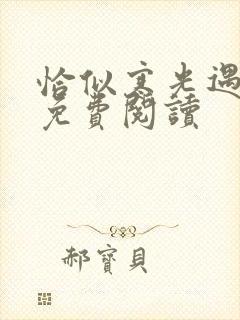 恰似寒光遇
免費閱讀
郝寶貝